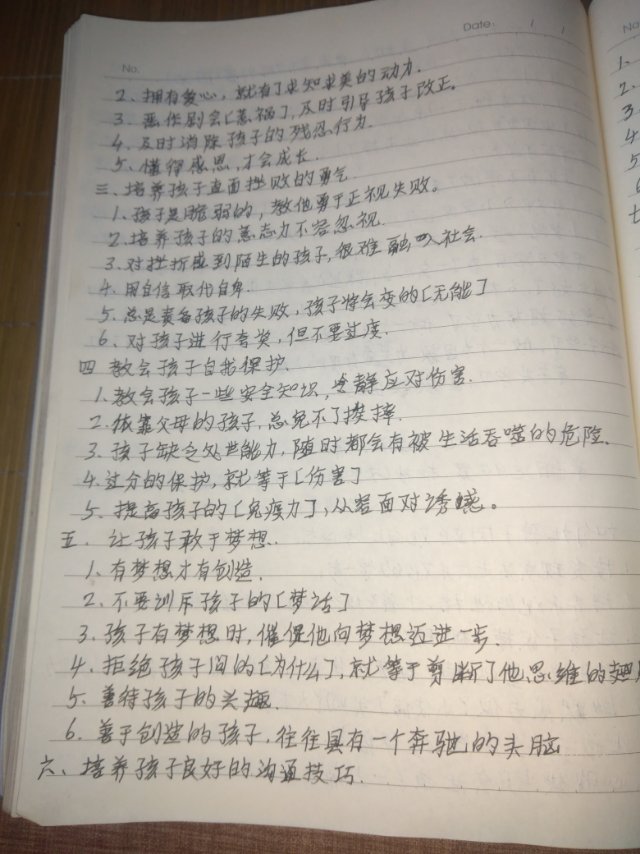 No.
Date. / /
2、拥有爱心，就有了求知求美的动力.
3、恶作剧会[惹祸]，及时引导孩子改正。
4、及时消除孩子的残忍行为.
5、懂得感恩，才会成长.
三、培养孩子直面挫败的勇气
1、孩子是脆弱的，教他勇于正视失败。
2.培养孩子的意志力不容忽视.
3.对挫折感到陌生的孩子，很难融入社会.
4.用自信取代自卑.
5、总是责备孩子的失败，孩子将会变的[无能]
6、对孩子进行夸奖，但不要过度.
四 教会孩子自我保护.
1.教会孩子一些安全知识，冷静应对伤害.
2.依靠父母的孩子，总免不了摔.
3.孩子缺乏处世能力，随时都会有被生活吞噬的危险.
4.过分的保护，就等于[伤害]
5、提高孩子的[免疫力]，从容面对诱惑。
五. 让孩子敢于梦想.
1、有梦想才有创造.
2、不要训斥孩子的[梦话]
3、孩子有梦想时，催促他向梦想迈进一步.
4、拒绝孩子问的[为什么]，就等于剪断了他思维的翅
5、善待孩子的兴趣.
6、善于创造的孩子，往往具有一个奔驰的头脑
六、培养孩子良好的沟通技巧.
No
1.
2.
3
4
5
6.
七